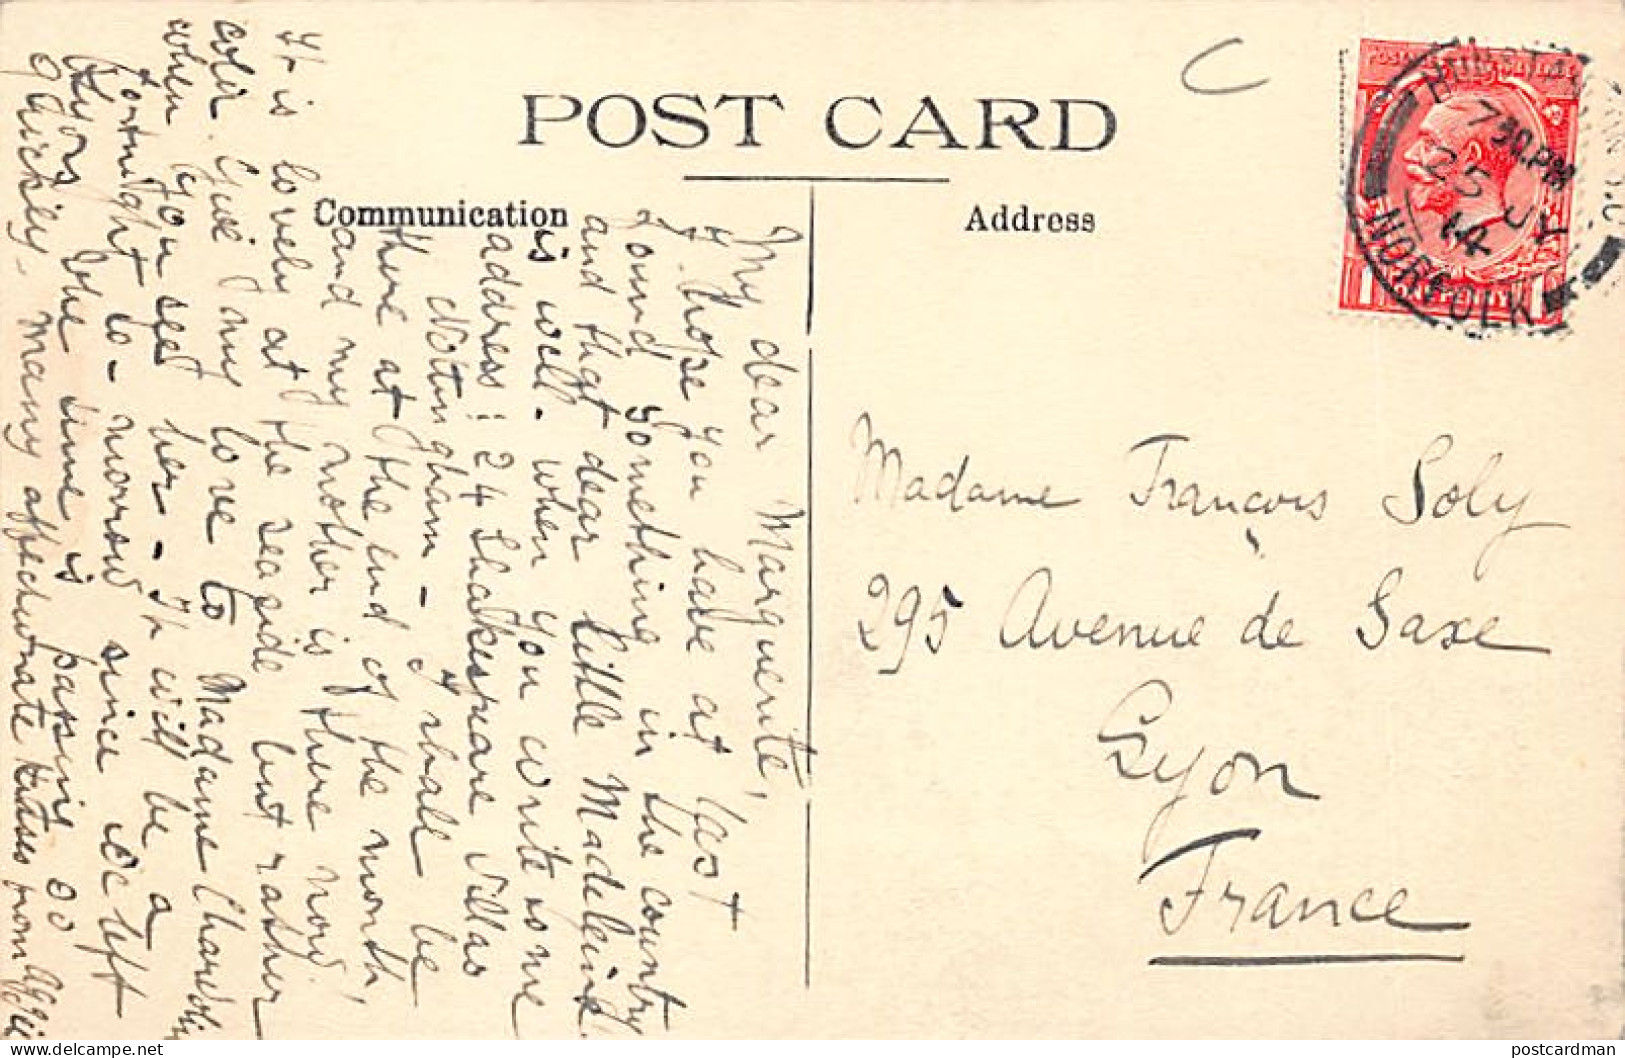 POST CARD
Communication
Address
POSTAGE REVENUE
HUNSTANTON
7 30.PM
25 JY
14
NORFOLK
1 ONE PENNY 1
My dear Marguerite,
I hope you have at last
found something in the country
and that dear little Madeleine
is well. When you write some
address: 24 Shakespeare Villas
Nottingham - I shall be
there at the end of the month,
and my mother is there now!
It is lovely at the seaside but rather
cold. Give my love to Madame
when you see her - It will be a
fortnight to-morrow since we left
Lyon, the time is passing so
quickly - many affectionate kisses from Aggie
Madame François Soly
295 Avenue de Saxe
Lyon
France
postcardman